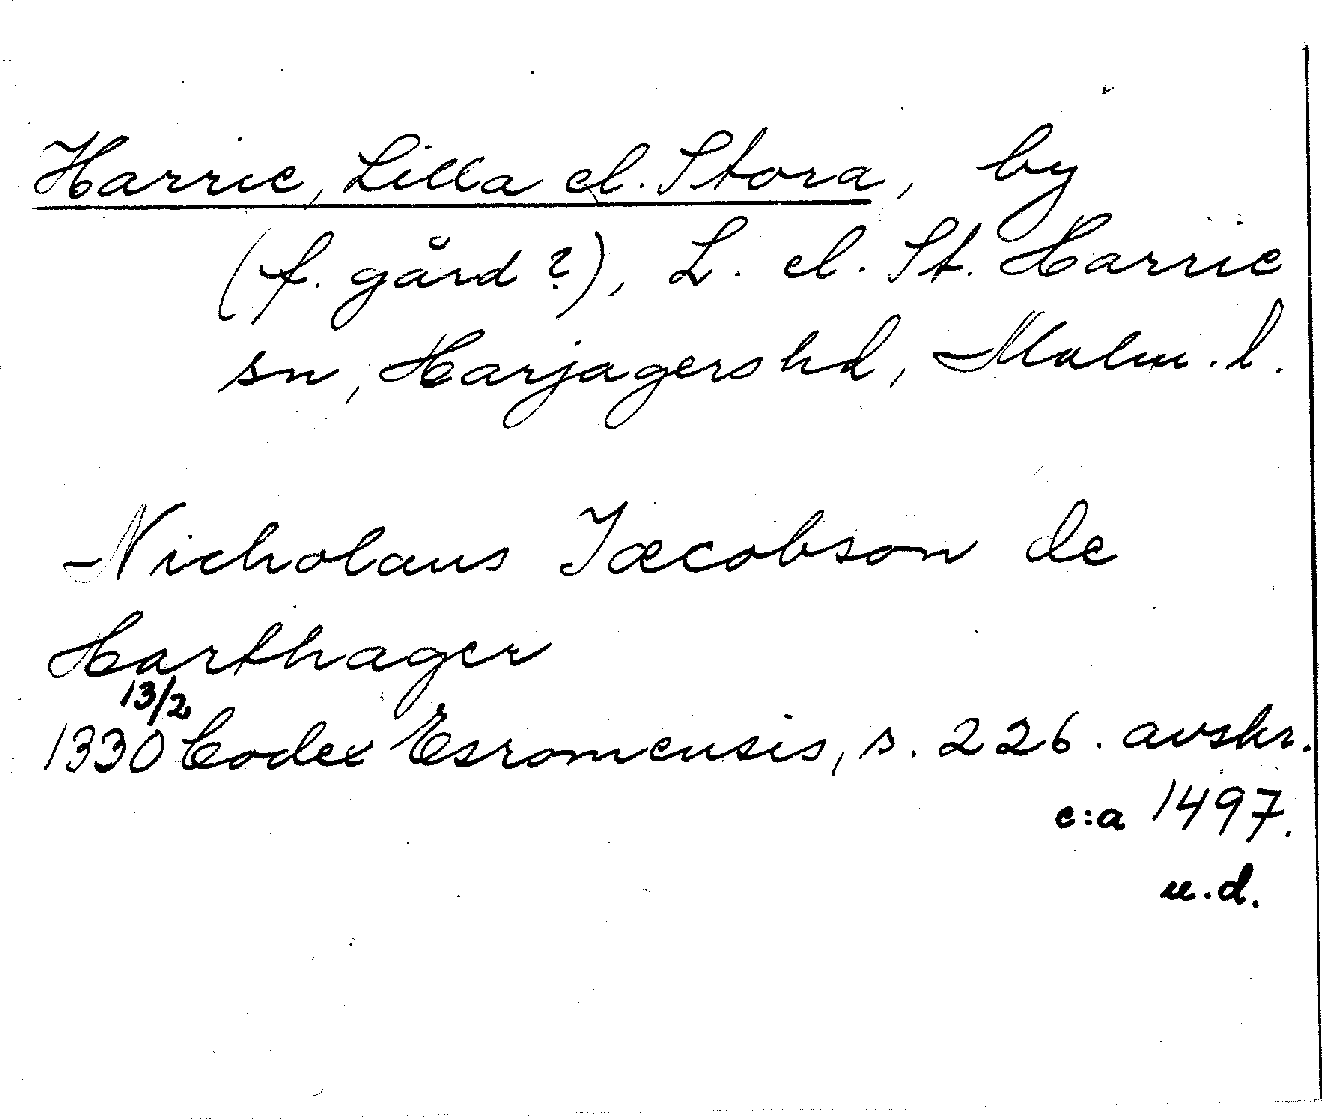 Harrie, Lilla el. Stora, by
(f. gård?), L. el. St. Harrie
sn, Harjagers hd, Malm. l.
Nicholaus Jæcobson de
Harthager
13/2
1330 Codex Esromensis, s. 226. avskr.
c:a 1497.
u.d.